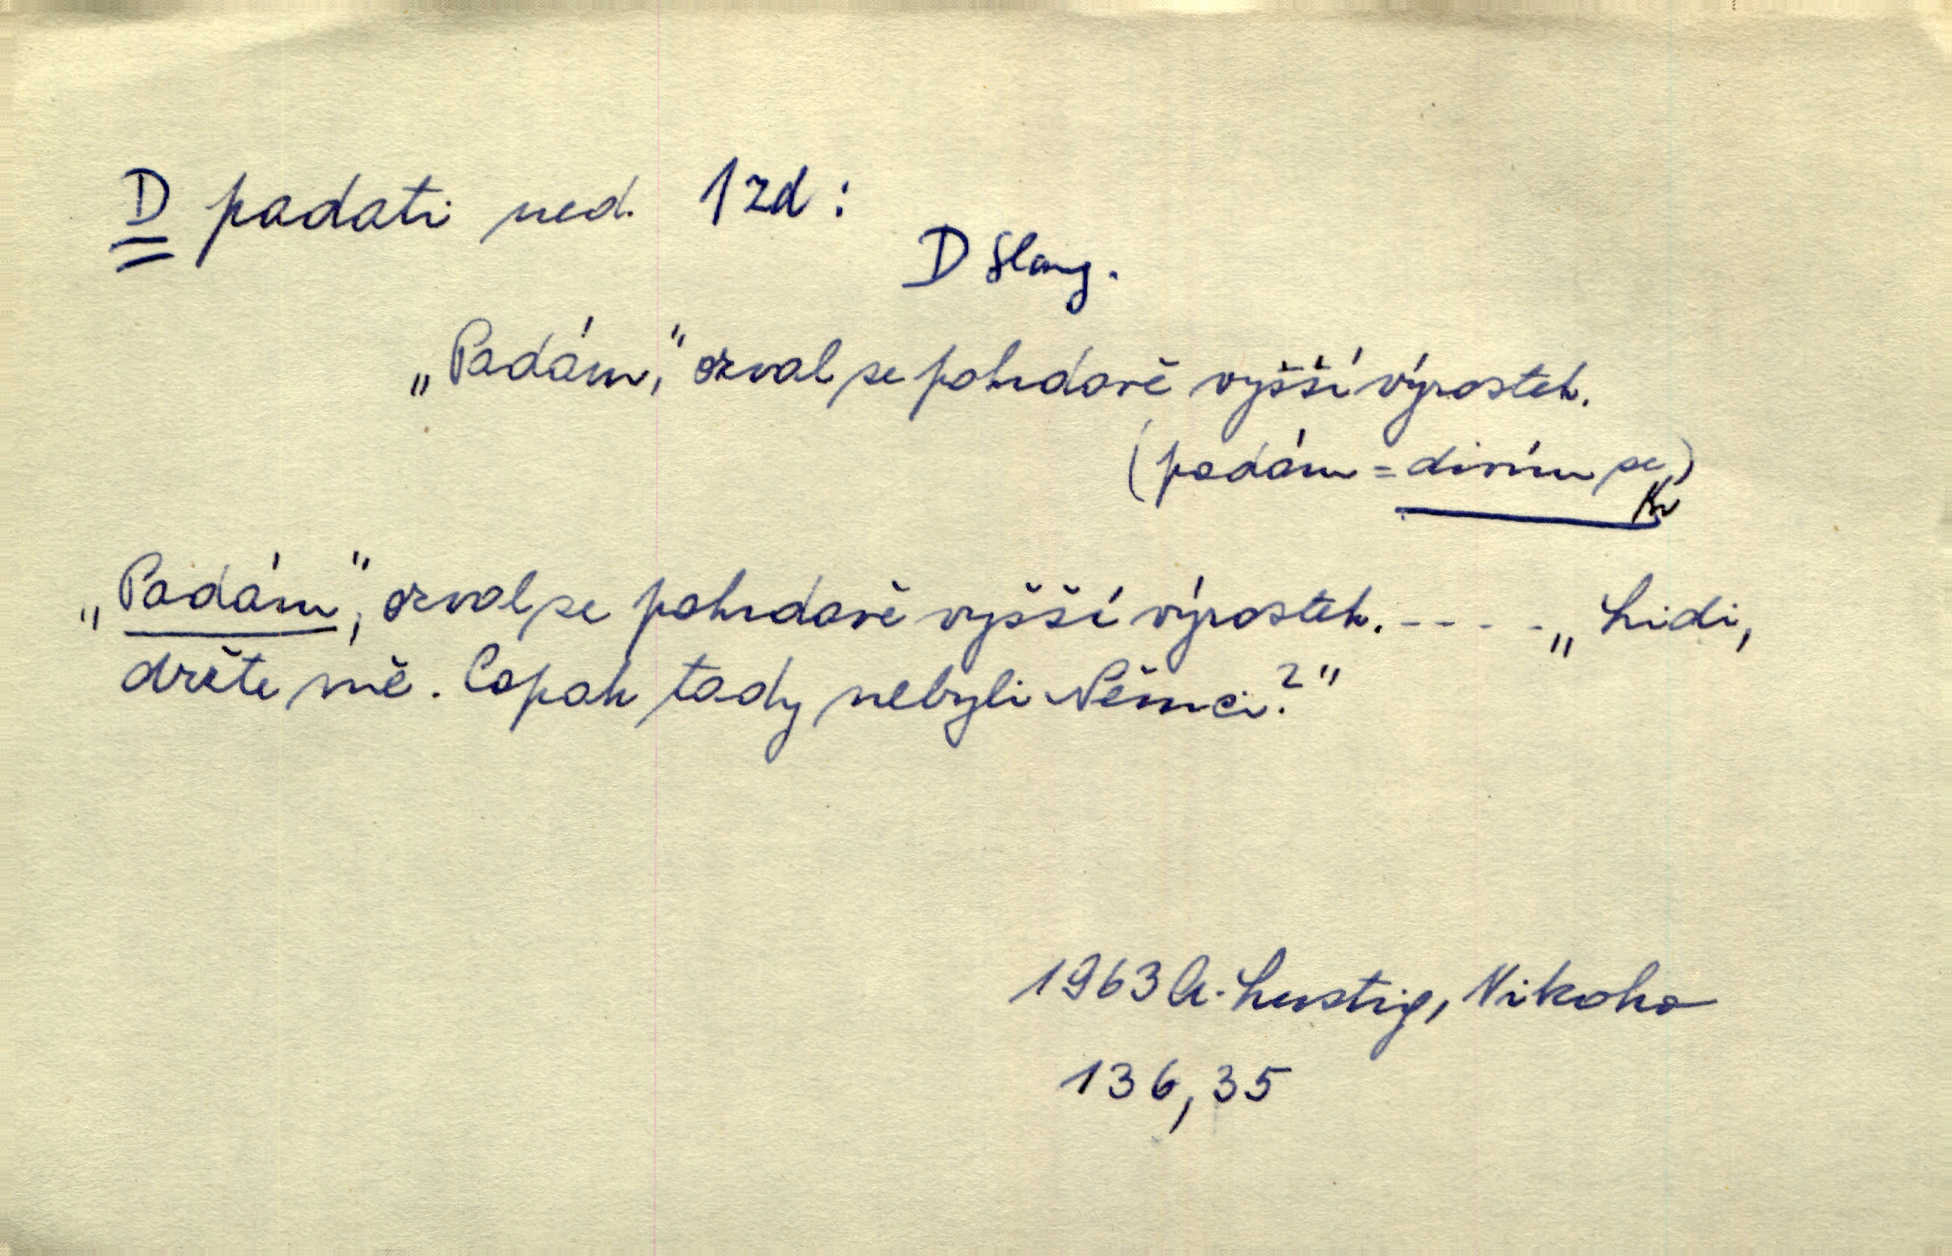 D padati ned. 1zd:
D slang.
„Padám,“ ozval se pohrdavě vyšší výrostek.
(padám = divím se)
Kv
„Padám“, ozval se pohrdavě vyšší výrostek. - - - - „Lidi,
držte mě. Copak tady nebyli Němci?“
1963 A. Lustig, Nikoho
136,35